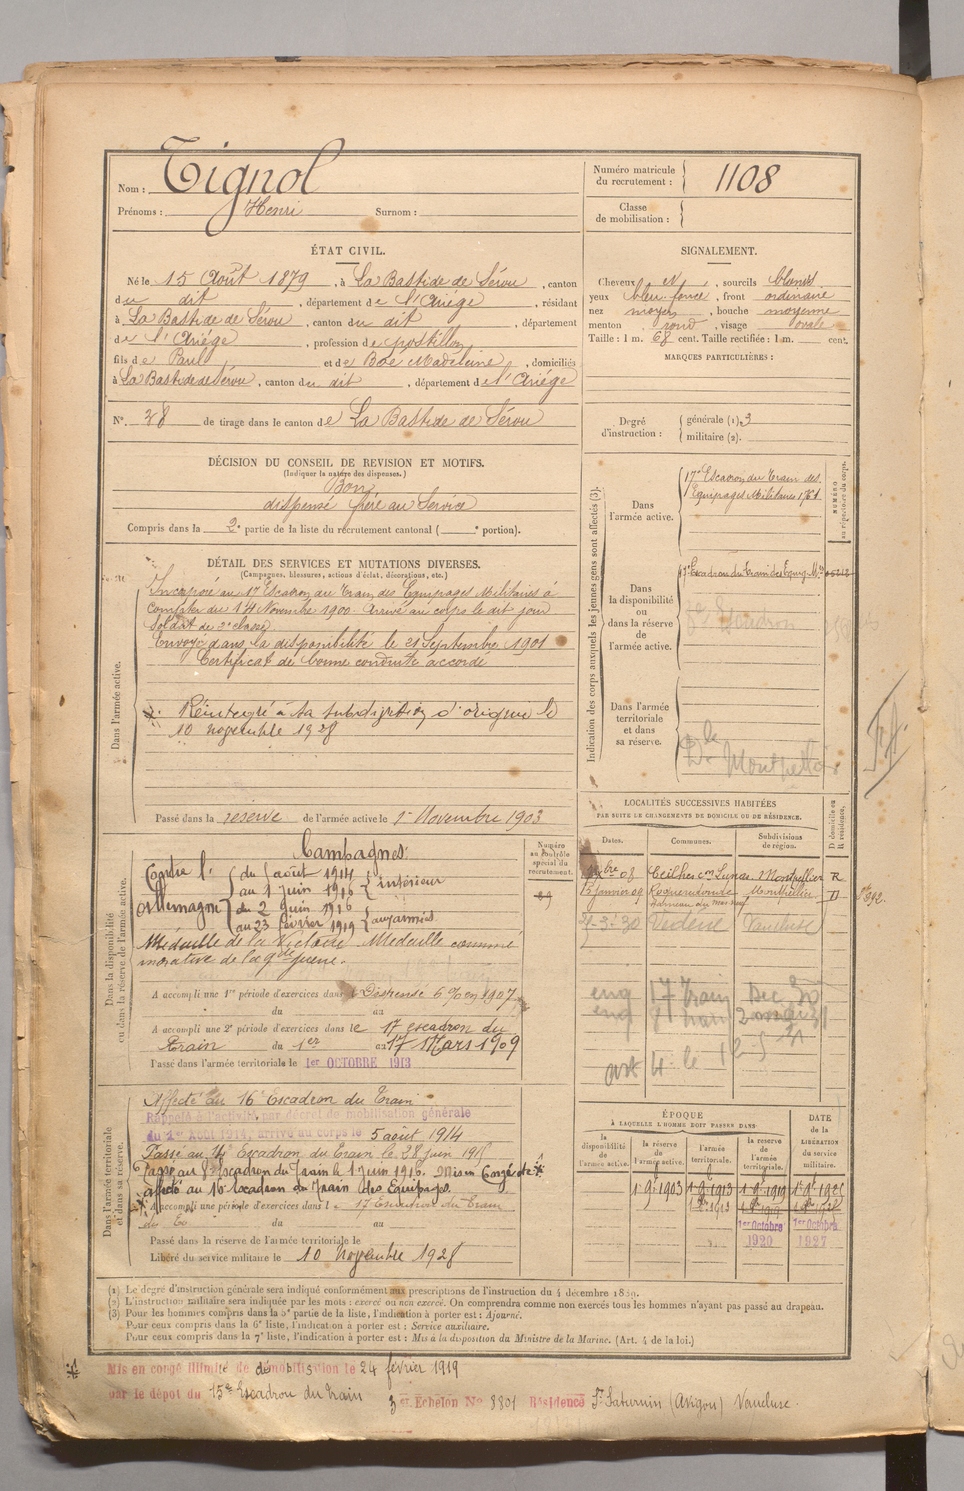 Nom : Tignol
Prénoms : Henri Surnom :
Numéro matricule du recrutement : 1108
Classe de mobilisation :
ÉTAT CIVIL.
Né le 15 Août 1879, à La Bastide de Sérou, canton
du dit, département de l'Ariége, résidant
à La Bastide de Sérou, canton du dit, département
de l'Ariége, profession de postillon
fils de Paul et de Boé Madeleine, domiciliés
à La Bastide de Sérou, canton du dit, département de l'Ariége
N°. 38 de tirage dans le canton de La Bastide de Sérou
SIGNALEMENT.
Cheveux N, sourcils blonds
yeux bleu foncé, front ordinaire
nez moyen, bouche moyenne
menton rond, visage ovale
Taille : 1 m. 68 cent. Taille rectifiée : 1 m. cent.
MARQUES PARTICULIÈRES :
Degré d'instruction : générale (1). 3
militaire (2).
DÉCISION DU CONSEIL DE REVISION ET MOTIFS.
(Indiquer la nature des dispenses.)
Bon
dispensé frère au Service
Compris dans la 2e partie de la liste du recrutement cantonal ( e portion).
DÉTAIL DES SERVICES ET MUTATIONS DIVERSES.
(Campagnes, blessures, actions d'éclat, décorations, etc.)
Dans l'armée active.
Incorporé au 17e Escadron du Train des Equipages Militaires à
compter du 14 Novembre 1900. Arrivé au corps le dit jour
Soldat de 2e classe
Envoyé dans la disponibilité le 21 Septembre 1901
Certificat de bonne conduite accordé
Réintégré à sa subdivision d'origine le
10 novembre 1928
Passé dans la réserve de l'armée active le 1er Novembre 1903
Indication des corps auxquels les jeunes gens sont affectés (3).
NUMÉRO au répertoire du corps.
Dans l'armée active.
17e Escadron du Train des
Equipages Militaires
Dans la disponibilité ou dans la réserve de l'armée active.
Escadron du Train des Equip. Mres
Escadron
Dans l'armée territoriale et dans sa réserve.
Montpellier
LOCALITÉS SUCCESSIVES HABITÉES
PAR SUITE DE CHANGEMENTS DE DOMICILE OU DE RÉSIDENCE.
Dates. Communes. Subdivisions de région. D domicile ou R résidence.
Ceilhes Montpellier R
Janvier 09 Roqueredonde Montpellier D
30 Vedène Vaucluse
17 Train Dec 30
Dans la disponibilité ou dans la réserve de l'armée active.
Numéro au contrôle spécial du recrutement.
Campagnes
Contre l'Allemagne
du 5 août 1914
au 1 juin 1916 intérieur
du 2 juin 1916
au 23 février 1919 aux armées
Médaille de la Victoire Médaille commé
morative de la gde guerre.
A accompli une 1re période d'exercices dans Dispensé 1907
du au
A accompli une 2e période d'exercices dans le 17 escadron du
Train du 1er au 17 Mars 1909
Passé dans l'armée territoriale le 1er OCTOBRE 1913
Dans l'armée territoriale et dans sa réserve.
Affecté au 16e Escadron du Train
Rappelé à l'activité par décret de mobilisation générale
du 1er Août 1914, arrivé au corps le 5 août 1914
Passé au Escadron du Train le 28 juin 1915
Passé au 8e Escadron du Train le 1 juin 1916. Mis en Congé
affecté au 15e Escadron du Train des Equipages.
A accompli une période d'exercices dans l 17 Escadron du Train
du au
Passé dans la réserve de l'armée territoriale le
Libéré du service militaire le 10 novembre 1928
ÉPOQUE
À LAQUELLE L'HOMME DOIT PASSER DANS
la disponibilité de l'armée active. la réserve de l'armée active. l'armée territoriale. la réserve de l'armée territoriale. DATE de la LIBÉRATION du service militaire.
1903 1913 1919
1er Octobre 1920 1er Octobre 1927
(1) Le degré d'instruction générale sera indiqué conformément aux prescriptions de l'instruction du 4 décembre 1889.
(2) L'instruction militaire sera indiquée par les mots : exercé ou non exercé. On comprendra comme non exercés tous les hommes n'ayant pas passé au drapeau.
(3) Pour les hommes compris dans la 5e partie de la liste, l'indication à porter est : Ajourné.
Pour ceux compris dans la 6e liste, l'indication à porter est : Service auxiliaire.
Pour ceux compris dans la 7e liste, l'indication à porter est : Mis à la disposition du Ministre de la Marine. (Art. 4 de la loi.)
Mis en congé illimité de démobilisation le 24 février 1919
par le dépôt du 15e Escadron du Train 3er Échelon No 8801 Résidence St Saturnin (Avignon) Vaucluse.